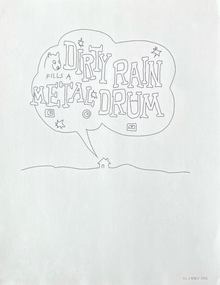 DIRTY RAIN
FILLS A
METAL DRUM